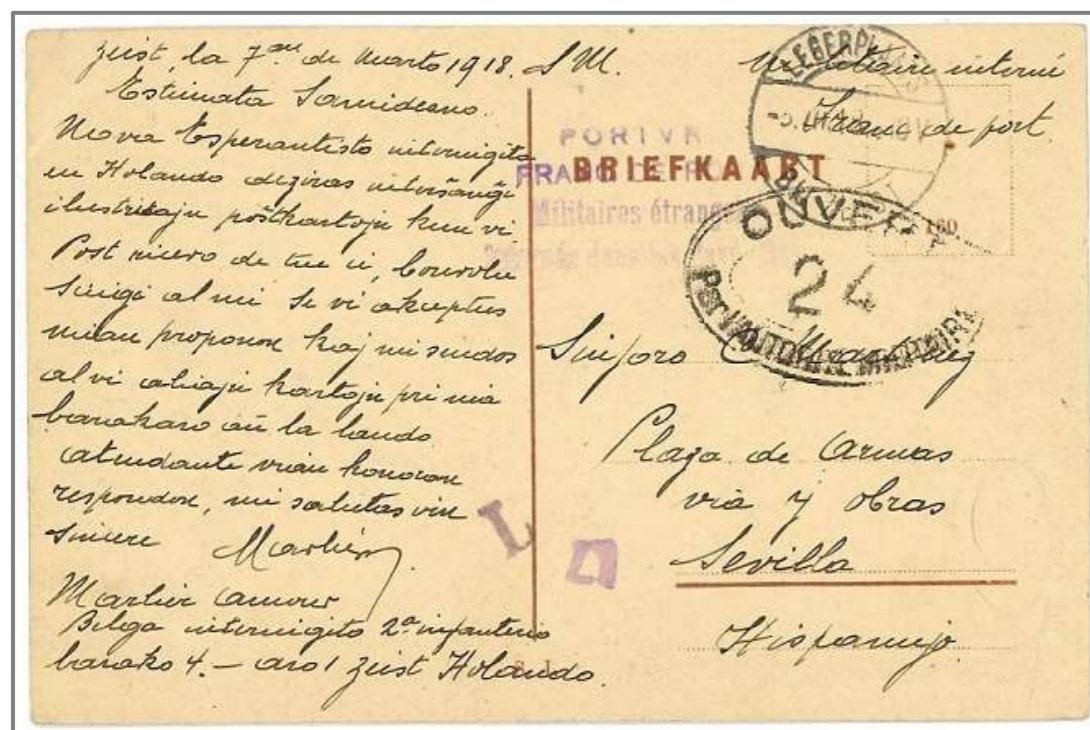 Zeist, la 7an de Marto 1918.
Estimata Samideano.
Nova Esperantisto internigita
en Holando deziras interŝanĝi
ilustritajn poŝtkartojn kun vi
Post ricevo de tiu ĉi, bonvolu
sciigi al mi se vi akceptus
mian proponon kaj mi sendos
al vi aliajn kartojn pri nia
barakaro aŭ la lando
atendante vian honoran
respondon, mi salutas vin
sincere Marlier
Marlier Camour
Belga internigito 2a infanterio
barako 4. — aro 1 Zeist Holando.
S.M. Militaire interné
Franc de port
PORTVR
FRANC DE PO
BRIEFKAART
Militaires étrang
dans
LEGERPL
OUVER
24
PAR L'AUTORITÉ MILITAIRE
160
Sinjoro
Plaza de Armas
via y obras
Sevilla
Hispanujo.
L